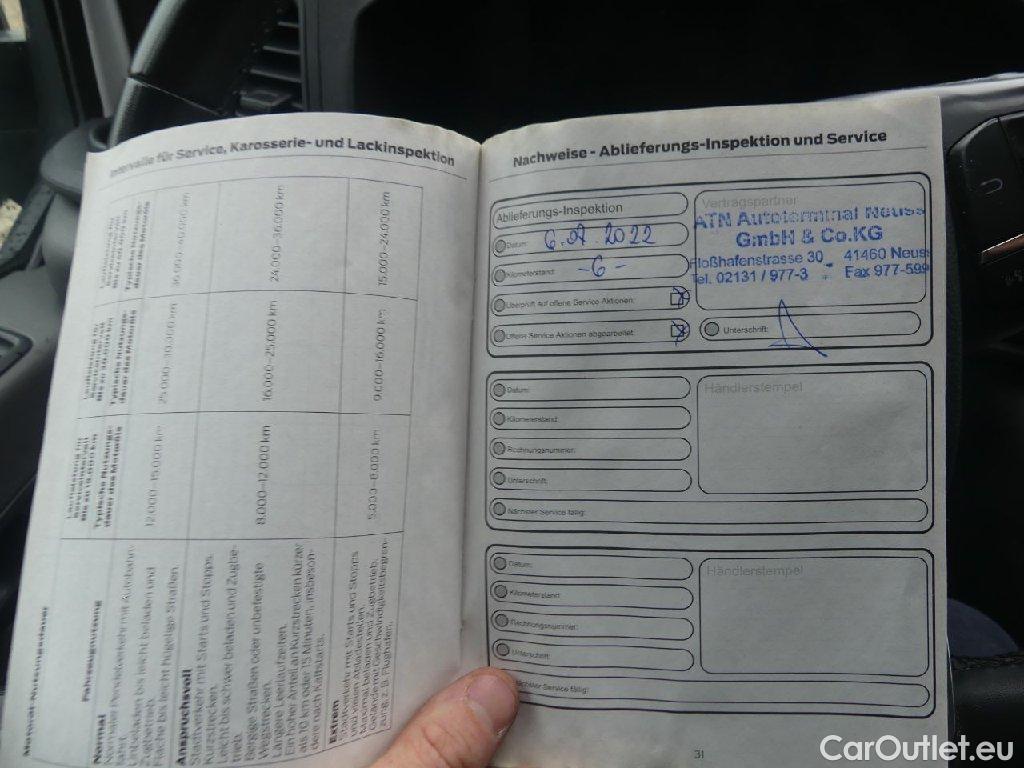 Intervalle für Service, Karosserie- und Lackinspektion
Motoröl-Nutzungsdauer
Fahrzeugnutzung
Typische Nutzungs-
dauer des Motoröls
Typische Nutzungs-
dauer des Motoröls
Typische Nutzungs-
dauer des Motoröls
Normal
Normaler Pendelverkehr mit Autobahn-
fahrt.
Unbeladen bis leicht beladen und
Zugbetrieb.
Flache bis leicht hügelige Straßen
12.000–15.000 km
25.000–30.000 km
Anspruchsvoll
Stadtverkehr mit Starts und Stopps.
Kurzstrecken.
Leicht bis schwer beladen und Zugbe-
trieb.
Bergige Straßen oder unbefestigte
Wegstrecken.
Längere Leerlaufzeiten.
Ein hoher Anteil an Kurzstrecken kürzer
als 10 km oder 15 Minuten, insbeson-
dere nach Kaltstarts.
8.000–12.000 km
16.000–25.000 km
24.000–36.000 km
Extrem
Stadtverkehr mit Starts und Stopps
Maximal beladen und Zugbetrieb.
5.000–8.000 km
9.600–16.000 km
15.000–24.000 km
Nachweise - Ablieferungs-Inspektion und Service
Ablieferungs-Inspektion
Datum: 6.07.2022
Kilometerstand: -6-
Überprüft auf offene Service Aktionen:
Offene Service Aktionen abgearbeitet:
Vertragspartner
ATN Autoterminal Neuss
GmbH & Co.KG
Floßhafenstrasse 30 41460 Neuss
Tel. 02131 / 977-3 Fax 977-599
Unterschrift:
Datum:
Kilometerstand:
Rechnungsnummer:
Unterschrift:
Nächster Service fällig:
Händlerstempel
Datum:
Kilometerstand:
Rechnungsnummer:
Unterschrift:
Nächster Service fällig:
Händlerstempel
31
CarOutlet.eu